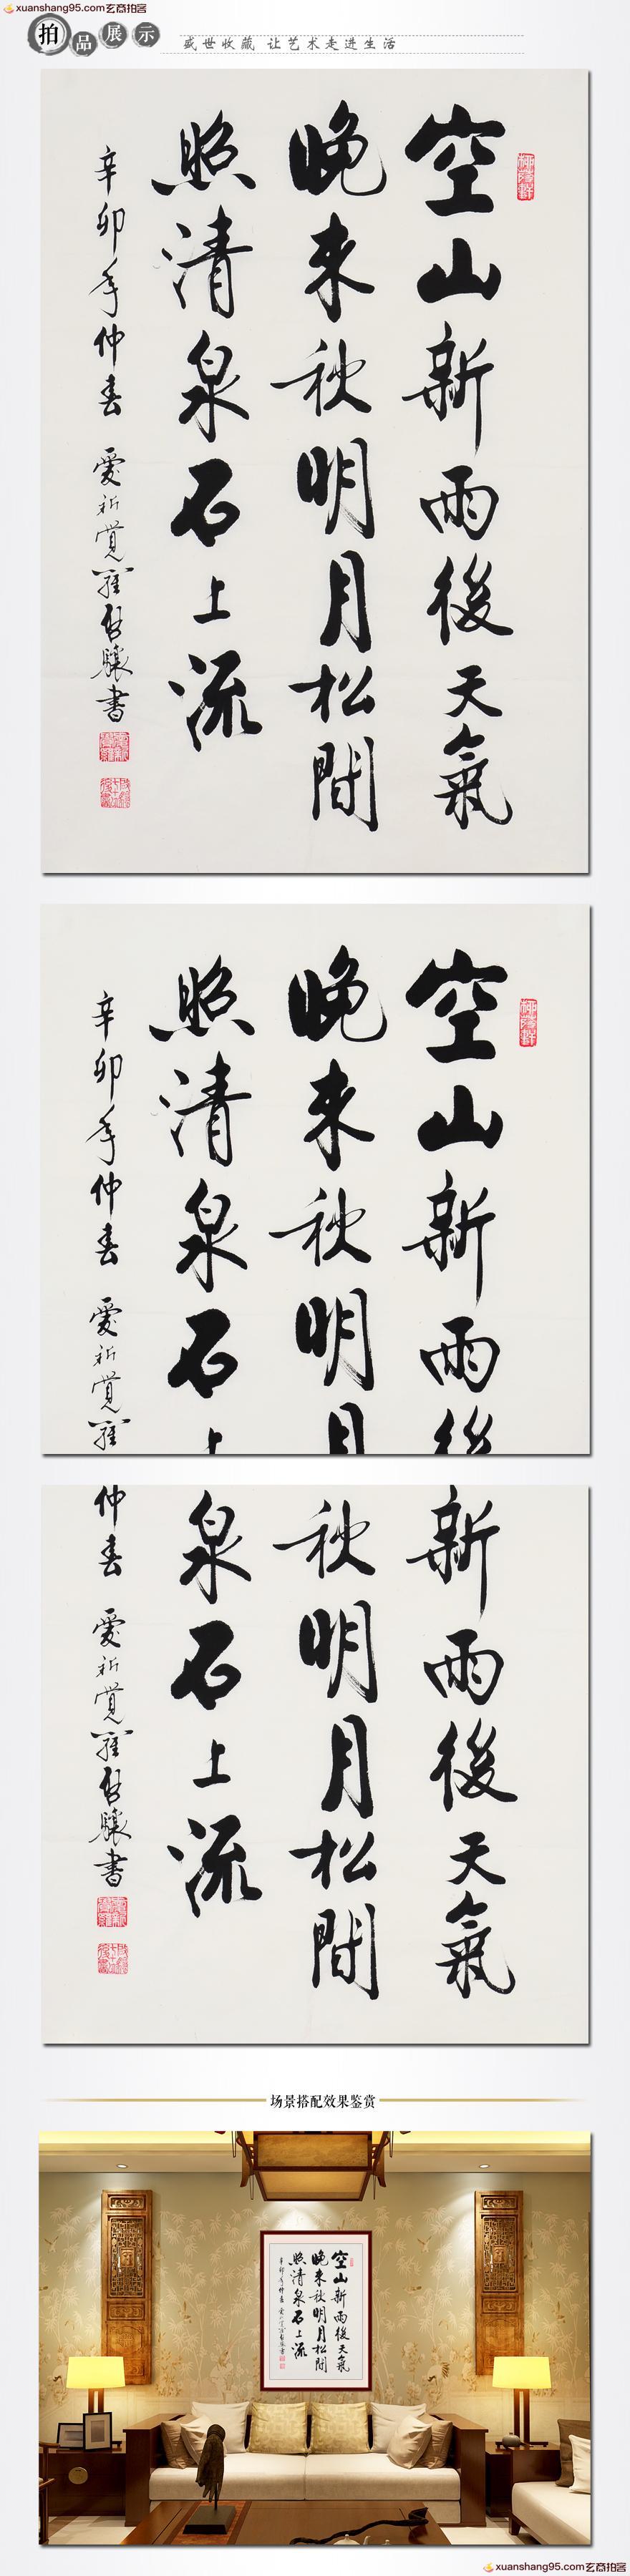 xuanshang95.com玄商拍客
拍品展示
盛世收藏 让艺术走进生活
空山新雨後天氣
晚来秋明月松間
照清泉石上流
辛卯年仲春 愛新覺羅啟驤書
空山新雨後
晚来秋明月
照清泉石上
辛卯年仲春 愛新覺羅
新雨後天氣
秋明月松間
泉石上流
仲春 愛新覺羅啟驤書
场景搭配效果鉴赏
空山新雨後天氣
晚来秋明月松間
照清泉石上流
xuanshang95.com玄商拍客